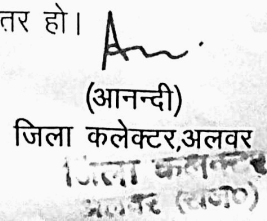 तर हो।
(आनन्दी)
जिला कलेक्टर,अलवर
जिला कलक्टर
अलवर (राज०)